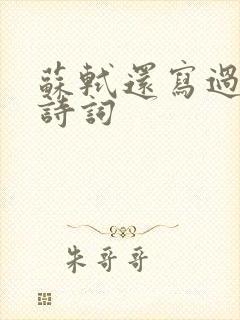 蘇軾還寫過
詩詞
朱哥哥